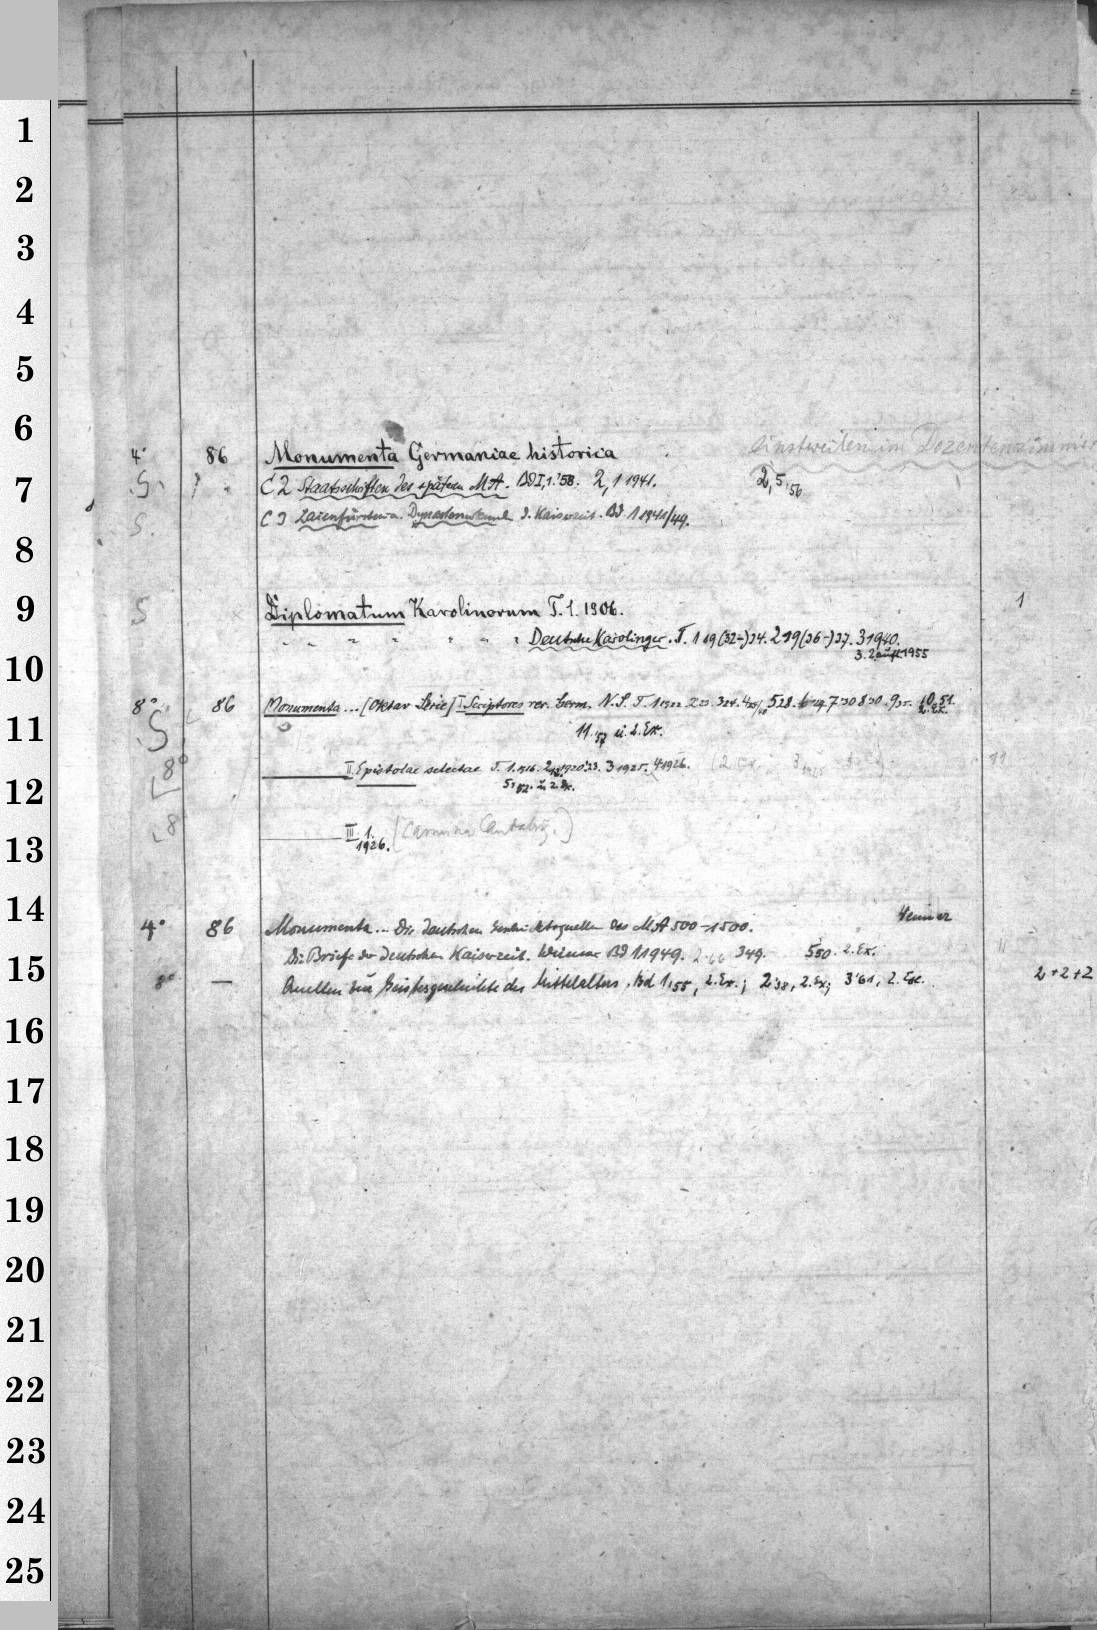 1
2
3
4
5
6
4° 86 Monumenta Germaniae historica Einstweilen im Dozentenzimmer
7
S C 2 Staatsschriften des späteren MA. Bd I,1.'58. 2,1 1941. 2,5,'56
S. C 3 Laienfürsten u. Dynastenurkund. d. Kaiserzeit. Bd 1 1941/49.
8
9
S Diplomatum Karolinorum T.1. 1906. 1
" " " " " " Deutsche Karolinger. T. 1 19(32-)34. 2 19(36-)37. 3 1940.
10
3. 2. Aufl. 1955
8° 86 Monumenta ... [Oktav Serie] I Scriptores rer. Germ. N.S. T. 1 1922. 2 23. 3 24. 5 28. 6 29. 7 30 8 30. 9 35. 10. 51. 2. Ex.
11
S 11. 57 u. 2. Ex.
8° II Epistolae selectae T. 1. 1916. 2 1920 '23. 3 1925. 4 1926. (2 Ex. 11
12
5 52. u. 2. Ex.
8 III 1. (Carmina Cantabrig.)
13
1926.
14
Weimar
4° 86 Monumenta ... Die deutschen Geschichtsquellen des MA 500-1500.
Die Briefe der deutschen Kaiserzeit. Weimar Bd 1 1949. 3 49. 5 50. 2. Ex.
15
8° — Quellen zur Geistesgeschichte des Mittelalters. Bd 1,'55, 2. Ex.; 2'58, 2. Ex; 3'61, 2. Ex. 2+2+2
16
17
18
19
20
21
22
23
24
25